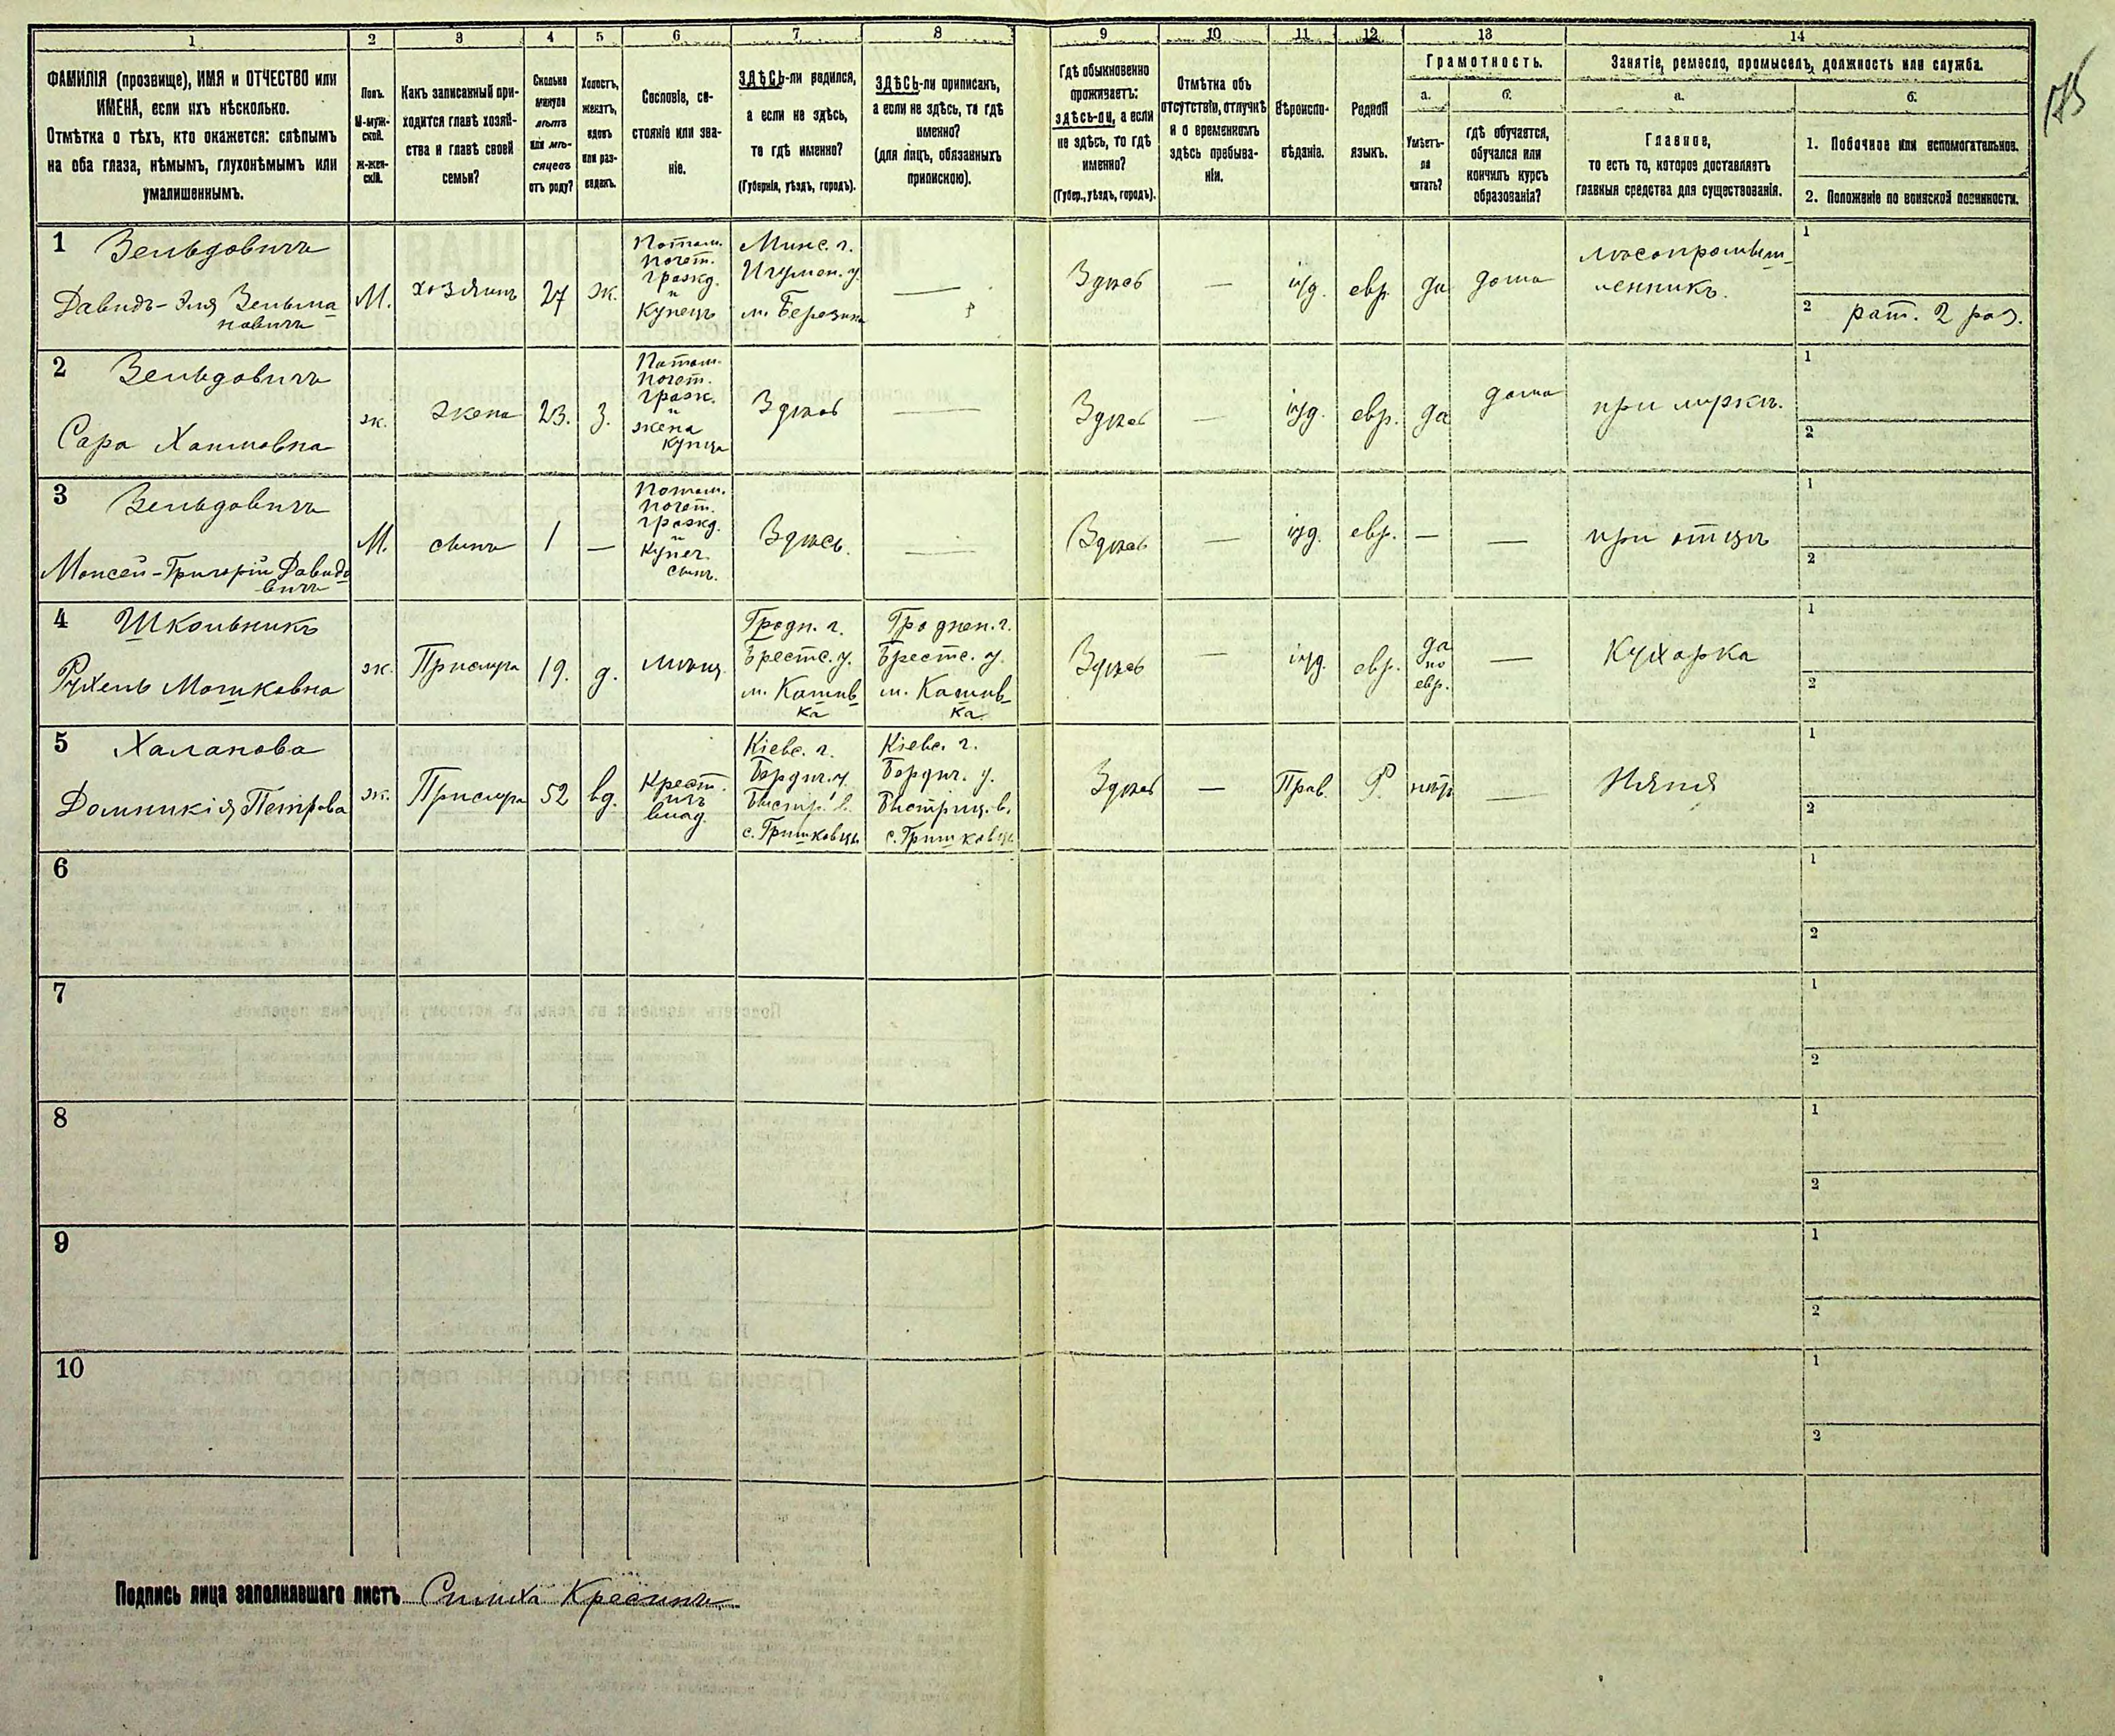 1 2 3 4 5 6 7 8 9 10 11 12 13 14
ФАМИЛІЯ (прозвище), ИМЯ и ОТЧЕСТВО или
ИМЕНА, если ихъ нѣсколько.
Отмѣтка о тѣхъ, кто окажется: слѣпымъ
на оба глаза, нѣмымъ, глухонѣмымъ или
умалишеннымъ.
Полъ.
М-муж-
ской.
Ж-жен-
скій.
Какъ записанный при-
ходится главѣ хозяй-
ства и главѣ своей
семьи?
Сколько
минуло
лѣтъ
или мѣ-
сяцевъ
отъ роду?
Холостъ,
женатъ,
вдовъ
или раз-
веденъ.
Сословіе, со-
стояніе или зва-
ніе.
ЗДѢСЬ-ли родился,
а если не здѣсь,
то гдѣ именно?
(Губернія, уѣздъ, городъ).
ЗДѢСЬ-ли приписанъ,
а если не здѣсь, то гдѣ
именно?
(для лицъ, обязанныхъ
припискою).
Гдѣ обыкновенно
проживаетъ:
здѣсь-ли, а если
не здѣсь, то гдѣ
именно?
(Губер., уѣздъ, городъ).
Отмѣтка объ
отсутствіи, отлучкѣ
и о временномъ
здѣсь пребыва-
ніи.
Вѣроиспо-
вѣданіе.
Родной
языкъ.
Грамотность.
а.
Умѣетъ-
ли
читать?
б.
гдѣ обучается,
обучался или
кончилъ курсъ
образованія?
Занятіе, ремесло, промыселъ, должность или служба.
а.
Главное,
то есть то, которое доставляетъ
главныя средства для существованія.
б.
1. Побочное или вспомогательное.
2. Положеніе по воинской повинности.
1 Зельдовичъ
Давидъ-Эля Зельма
новичъ
М.
хозяинъ
27
ж.
Потом.
почет.
гражд.
и
купецъ
Минс. г.
Игумен. у.
м. Березина
—
Здѣсь
—
іуд.
евр.
да
дома
лѣсопромыш-
ленникъ.
1
2 рат. 2 раз.
2 Зельдовичъ
Сара Хаимовна
ж.
жена
23.
з.
Потом.
почет.
гражд.
и
жена
купца
Здѣсь
—
Здѣсь
—
іуд.
евр.
да
дома
при мужѣ.
1
2
3 Зельдовичъ
Моисей-Григорій Давидо
вичъ
М.
сынъ
1
—
Потом.
почет.
гражд.
и
купеч.
сынъ.
Здѣсь.
—
Здѣсь
—
іуд.
евр.
—
—
при отцѣ
1
2
4 Школьникъ
Рухель Мошковна
ж.
Прислуга
19.
д.
мѣщ.
Гродн. г.
Брестс. у.
м.
ка
Гроднен. г.
Брестс. у.
м.
ка
Здѣсь
—
іуд.
евр.
да
по
евр.
—
Кухарка
1
2
5 Халапова
Домникія Петрова
ж.
Прислуга
52
вд.
Крест.
изъ
влад.
Кіевс. г.
Бердич. у.
Быстр. в.
с. Гришковцы
Кіевс. г.
Бердич. у.
Быстриц. в.
с. Гришковцы
Здѣсь
—
Прав.
Р.
нѣтъ
—
Няня
1
2
6
1
2
7
1
2
8
1
2
9
1
2
10
1
2
Подпись лица заполнявшаго листъ Симха Кресинъ